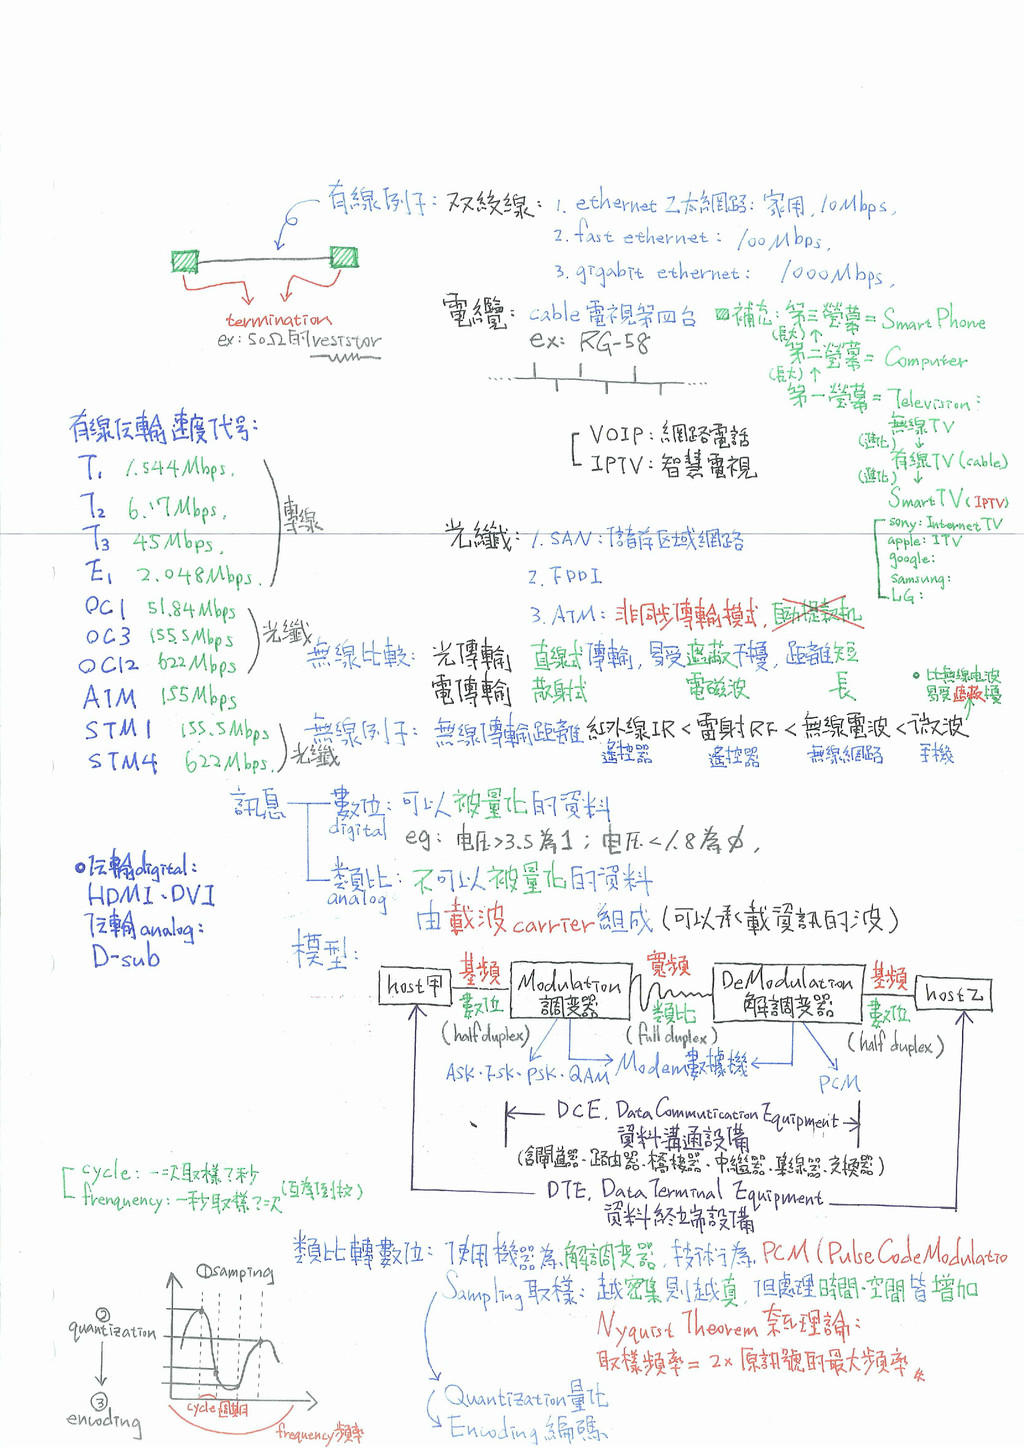 有線例子: 双絞線: 1. ethernet 乙太網路: 家用, 10Mbps,
2. fast ethernet: 100Mbps,
3. gigabit ethernet: 1000Mbps,
termination
ex: 50Ω的resistor
電纜: cable電視第四台
ex: RG-58
補充: 第三螢幕= Smart Phone
(長大)↑
第二螢幕= Computer
(長大)↑
第一螢幕= Television:
無線TV
(進化)↓
有線TV(cable)
(進化)↓
SmartTV(IPTV)
sony: Internet TV
apple: ITV
google:
samsung:
LG:
VOIP: 網路電話
IPTV: 智慧電視
有線伝輸速度代号:
T1 1.544Mbps,
T2 6.17Mbps,
T3 45Mbps,
E1 2.048Mbps,
專線
OC1 51.84Mbps
OC3 155.5Mbps
OC12 622Mbps
光纖
ATM 155Mbps
STM1 155.5Mbps
STM4 622Mbps,
光纖
光纖: 1. SAN: 儲存区域網路
2. FDDI
3. ATM: 非同步傳輸模式, 自動提款机
無線比較: 光傳輸 直線式傳輸, 易受遮蔽干擾, 距離短
電傳輸 散射式 電磁波 長
比無線电波
易受遮蔽擾
無線例子: 無線傳輸距離 紅外線IR<雷射RF<無線電波<微波
遙控器 遙控器 無線網路 手機
訊息 數位: 可以被量化的資料
digital
eg: 电圧>3.5為1; 电圧<1.8為0,
類比: 不可以被量化的資料
analog
由載波carrier組成(可以承載資訊的波)
伝輸digital:
HDMI、DVI
伝輸analog:
D-sub
模型:
host甲 基頻 Modulation 寬頻 DeModulation 基頻 host乙
數位 調变器 類比 解調变器 數位
(half duplex) (full duplex) (half duplex)
ASK·FSK·PSK·QAM Modem數據機 PCM
DCE, Data Commutication Equipment
資料溝通設備
(含閘道器·路由器·橋接器·中繼器·集線器·交換器)
DTE, Data Terminal Equipment
資料終端設備
cycle: 一次取樣?秒
frenquency: 一秒取樣?次
(互為倒数)
類比轉數位: 使用機器為解調变器, 技術行為 PCM(PulseCodeModulatio
Sampling取樣: 越密集則越真, 但處理時間·空間皆增加
Nyquist Theorem 奈氏理論:
取樣頻率=2×原訊號的最大頻率
Quantization量化
Encoding編碼
①samping
②
quantization
③
encoding
cycle週期
frequency頻率